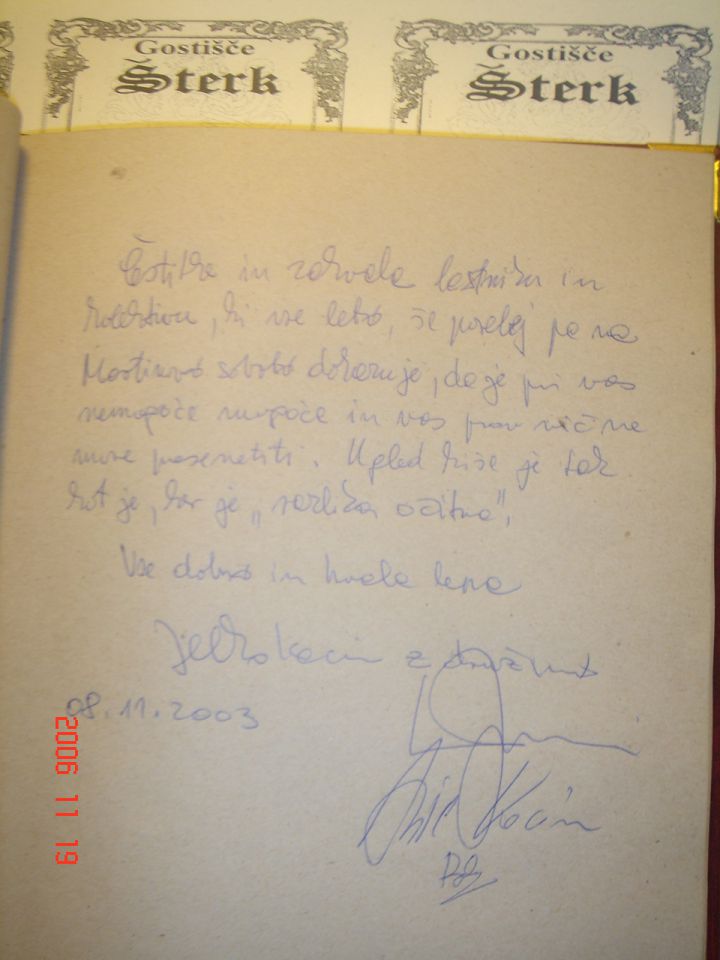 Gostišče
Šterk
Gostišče
Šterk
Čestitke in zahvala lastniku in
kolektivu, ki vse leto, še posebej pa na
Martinovo soboto dokazuje, da je pri vas
nemogoče mogoče in vas prav nič ne
more presenetiti. Ugled hiše je tak
kot je, ker je „razlika očitna".
Vse dobro in hvala lepa
Jelko Kacin z družino
08.11.2003
Kacin
2006 11 19